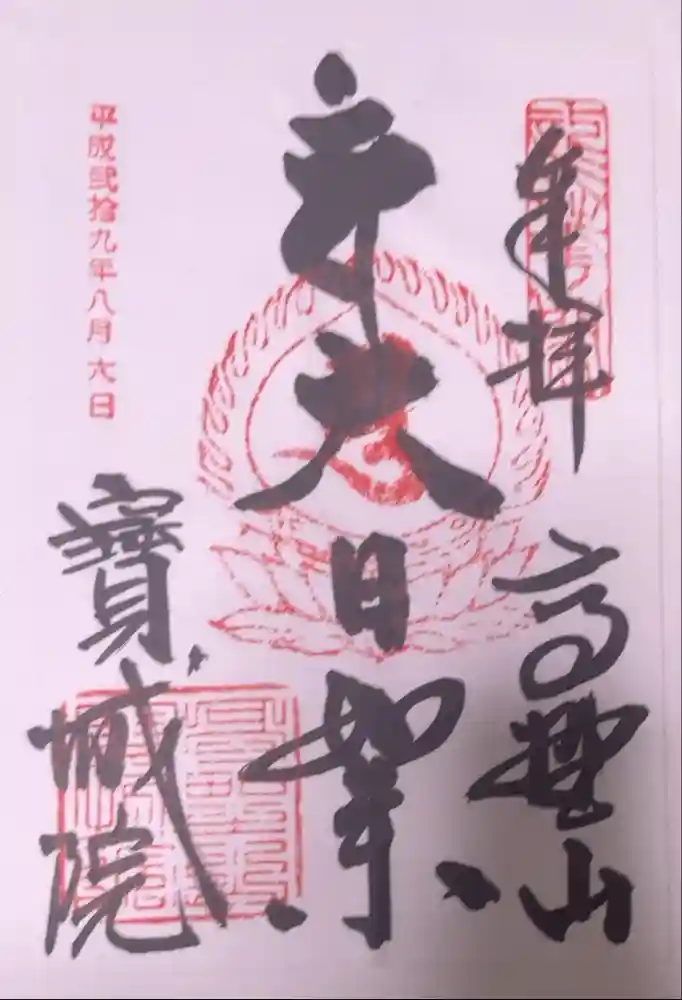 奉拝
高野山
大日如来
平成弐拾九年八月六日
寶城院